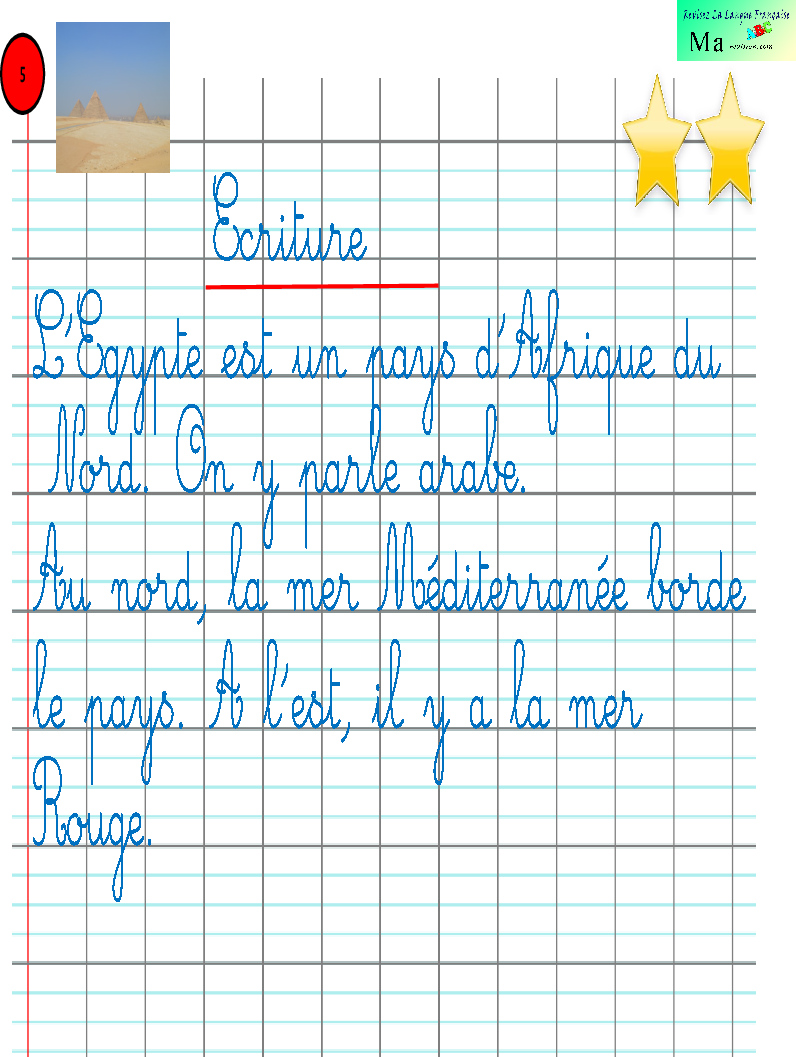 Revisez La Langue Française
Ma
5
Ecriture
L'Egypte est un pays d'Afrique du
Nord. On y parle arabe.
Au nord, la mer Méditerranée borde
le pays. A l'est, il y a la mer
Rouge.